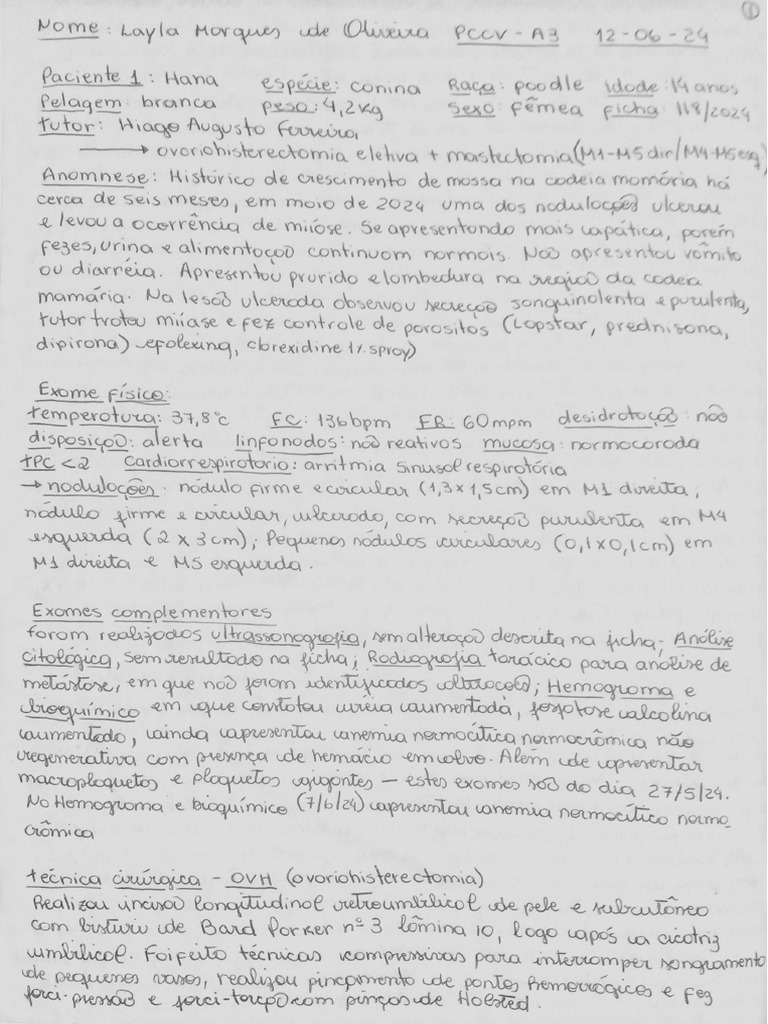 1
Nome: Layla Marques de Oliveira PCCV - A3 12-06-24
Paciente 1: Hana espécie: canina Raça: poodle idade: 14 anos
Pelagem: branca peso: 4,2Kg Sexo: fêmea ficha: 118/2024
tutor: Hiago Augusto Ferreira
→ ovariohisterectomia eletiva + mastectomia (M1-M5 dir/M4-M5 esq)
Anamnese: Histórico de crescimento de massa na cadeia mamária há
cerca de seis meses, em maio de 2024 uma das nodulações ulcerou
e levou a ocorrência de miíose. Se apresentando mais apática, porém
fezes, urina e alimentação continuam normais. Não apresentou vômito
ou diarréia. Apresentou prurido e lambedura na região da cadeia
mamária. Na lesão ulcerada observou secreção sanguinolenta e purulenta,
tutor tratou miíase e fez controle de parasitos (Capstar, prednisona,
dipirona) cefalexina, clorexidine 1% spray)
Exame físico:
temperatura: 37,8°c FC: 136bpm FR: 60mpm desidratação: não
disposição: alerta linfonodos: não reativos mucosa: normocorada
TPC <2 Cardiorrespiratorio: arritmia sinusal respiratória
→ nodulações: nódulo firme e circular (1,3 x 1,5cm) em M1 direita;
nódulo firme e circular, ulcerado, com secreção purulenta em M4
esquerda (2 x 3cm); Pequenos nódulos circulares (0,1x0,1cm) em
M1 direita e M5 esquerda.
Exames complementares
foram realizados ultrassonografia, sem alteração descrita na ficha; Análise
citológica, sem resultado na ficha; Radiografia torácico para análise de
metástase, em que não foram identificadas alterações; Hemograma e
bioquímico em que constatou ureia aumentada, fosfatase alcalina
aumentada, ainda apresentou anemia normocítica normocrômica não
regenerativa com presença de hemácia em alvo. Além de apresentar
macroplaquetas e plaquetas gigantes — estes exames são do dia 27/5/24.
No Hemograma e bioquímico (7/6/24) apresentou anemia normocítico normo-
crômica
técnica cirúrgica - OVH (ovariohisterectomia)
Realizou incisão longitudinal retroumbilical de pele e subcutâneo
com bisturi de Bard Parker nº 3 lâmina 10, logo após a cicatriz
umbilical. Foi feito técnicas compressivas para interromper sangramento
de pequenos vasos, realizou pinçamento de pontos hemorrágicos e fez
forci-pressão e forci-torção com pinças de Halsted.